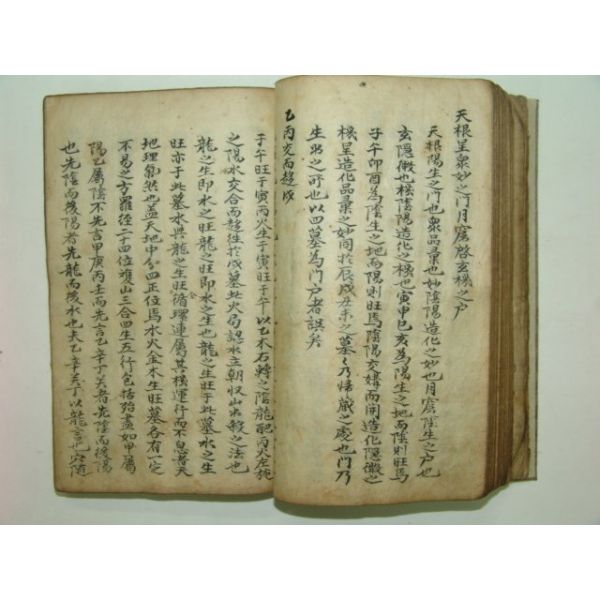 天根呈衆妙之门月窟啓玄機之戶
天根陽生之门也衆品彙也妙陰陽造化之妙也月窟陰生之戶也
玄隱微也機陰陽造化之機也寅申巳亥為陽生之地而陰則旺焉
子午卯酉為陰生之地而陽則旺焉陰陽交媾而闢造化隱微之
機呈造化品彙之妙闢於辰戌丑未之墓墓乃歸藏之處也门乃
生出之所也以四墓為门戶者誤矣
乙丙交而趨戌
于午旺于寅丙火生于寅旺于午以乙木右轉之陰龍配丙火左旋
之陽水交合而趨歸於戌墓此火局認水立朝收山出殺之法也
龍之生即水之旺龍之旺即水之生也龍之生旺于此墓水之生
旺亦于此墓水與龍之生旺循環連屬其機運行而不息者天
地理氣然也盖天地中分四正位焉水火金木生旺墓各有一定
不易之方羅徑二十四位複山三合四生五行包括殆盡如甲屬
陽乙屬陰不先言甲庚丙壬而先言乙辛丁癸者先陰而後陽
也先陰而後陽者先龍而後水也夫乙辛癸丁以龍言也穴隨